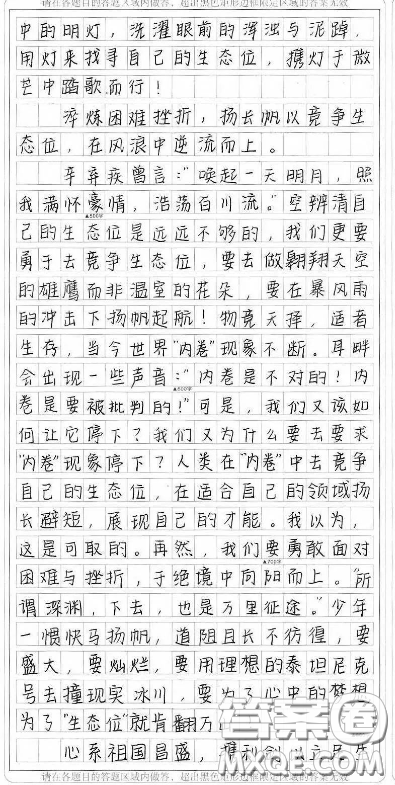 请在各题目的答题区域内做答，超出黑色矩形边框限定区域的答案无效
中的明灯，洗濯眼前的浑浊与泥踔，
用灯来找寻自己的生态位，携灯于微
芒中踏歌而行！
淬炼困难挫折，扬长帆以竞争生
态位，在风浪中逆流而上。
辛弃疾曾言：“唤起一天明月，照
我满怀豪情，浩荡百川流。”空辨清自
▲500字
己的生态位是远远不够的，我们更要
勇于去竞争生态位，要去做翱翔天空
的雄鹰而非温室的花朵，要在暴风雨
的冲击下扬帆起航！物竞天择，适者
生存，当今世界“内卷”现象不断。耳畔
会出现一些声音：“内卷是不对的！内
▲600字
卷是要被批判的！”可是，我们又该如
何让它停下？我们又为什么要去要求
“内卷”现象停下？人类在“内卷”中去竞争
自己的生态位，在适合自己的领域扬
长避短，展现自己的才能。我以为，
这是可取的。再然，我们要勇敢面对
▲700字
困难与挫折，于绝境中向阳而上。“所
谓深渊，下去，也是万里征途。”少年
一惯快马扬帆，道阻且长不彷徨，要
盛大，要灿烂，要用理想的泰坦尼克
号去撞现实冰川，要为了心中的梦想
为了“生态位”就肯翻万山
答案圈
心系祖国昌盛，携利剑以立足生
请在各题目的答题区域内做答，超出黑色矩形边框限定区域的答案无效